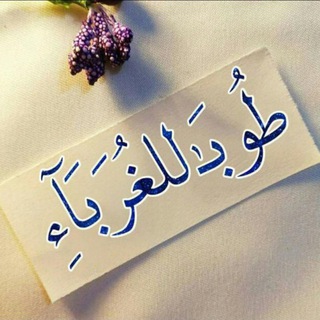 طُوبَىٰ للغُرَبَآءِ